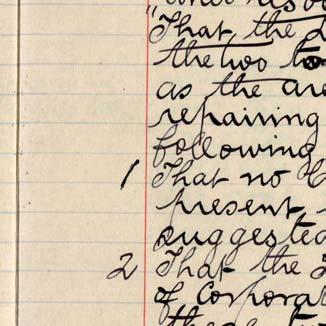 That the
the two to
as the are
repairing
following
1 That no
present
suggested
2 That the
of Corporat